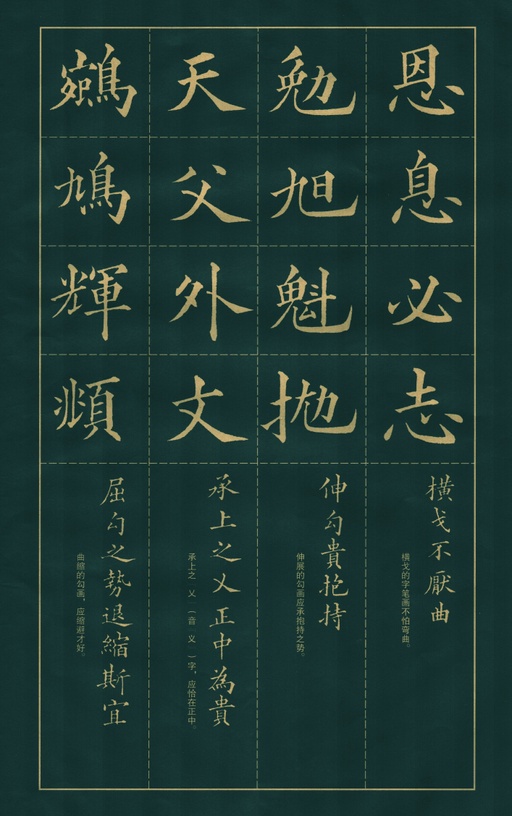 恩息必志
橫戈不厭曲
横戈的字笔画不怕弯曲。
勉旭魁拋
伸勾貴抱持
伸展的勾画应承抱持之势。
天父外丈
承上之乂正中為貴
承上之 乂 （音 义 ）字，应恰在正中。
鳩輝頫
屈勾之勢退縮斯宜
曲缩的勾画，应缩避才好。